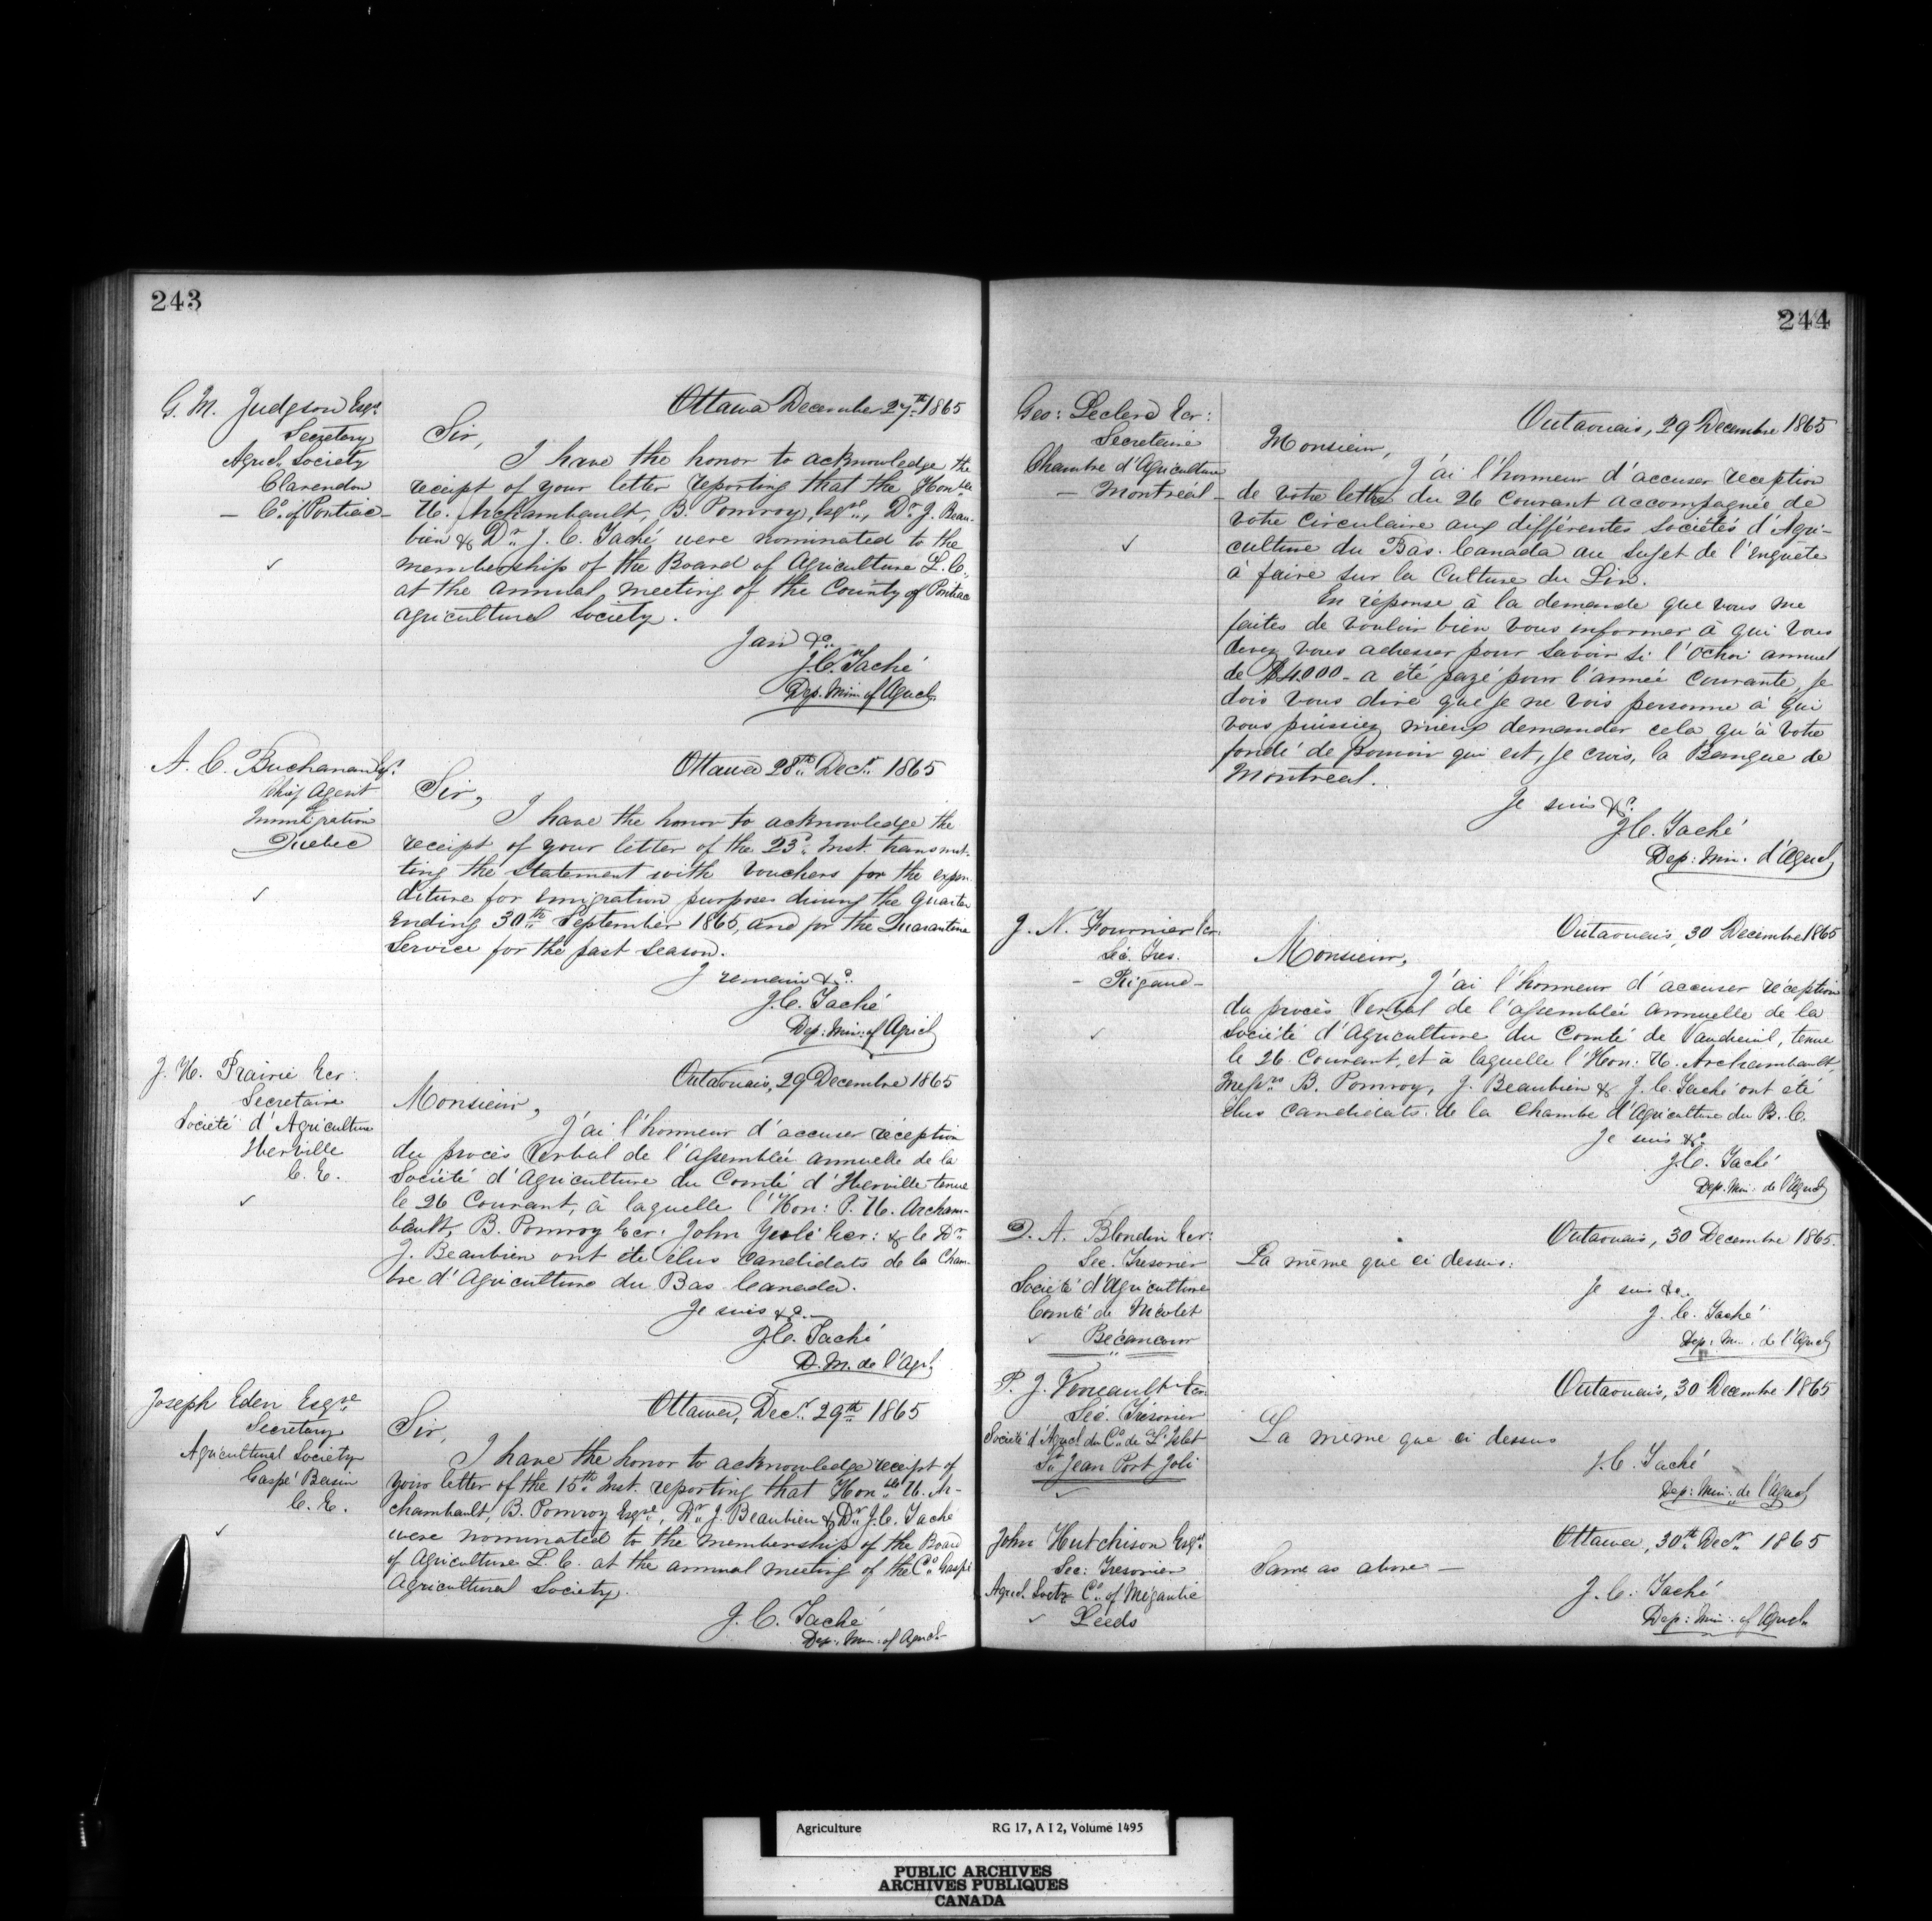 243
G. M. Judgson Esqr.
Secretary
Agricl. Society
Clarendon
– Co. of Pontiac –
Ottawa December 27th 1865
Sir,
I have the honor to acknowledge the
receipt of your letter reporting that the Honble
U. Archambault, B. Pomroy, Esqre, Dr J. Beau-
bien & Dr. J. C. Taché were nominated to the
membership of the Board of Agriculture L. C.,
at the annual meeting of the County of Pontiac
agricultural Society.
I am &c.
J.C. Taché
Dep. Min. of Agricl.
A. C. Buchanan Esqr.
Chief Agent
Immigration
Quebec
Ottawa 28th Decr. 1865
Sir,
I have the honor to acknowledge the
receipt of your letter of the 23d. Inst. transmit-
ting the statement with vouchers for the expen-
diture for emigration purposes during the quarter
ending 30th September 1865, and for the Quarantine
Service for the past season.
I remain &c.
J.C. Taché
Dep: Min: of Agricl
J. H. Prairie Ecr:
Secretaire
Société d'Agriculture
Iberville
C. E.
Outaouais, 29 Decembre 1865
Monsieur,
J'ai l'honneur d'accuser réception
du procès Verbal de l'assemblée annuelle de la
Société d'Agriculture du Comté d'Iberville tenue
le 26 Courant, à laquelle l'Hon: P. U. Archam-
bault, B. Pomroy Ecr: John Yeslé Ecr: & le Dr
J. Beaubien ont été élus Candidats de la Cham-
bre d'Agriculture du Bas Canada.
Je suis &c.
J.C. Taché
D. M. de l'Agrl.
Joseph Eden Esqre
Secretary
Agricultural Society
Gaspé Basin
C. E.
Ottawa, Decr. 29th 1865
Sir,
I have the honor to acknowledge receipt of
your letter of the 15th Inst. reporting that Honble U. Ar-
chambault, B. Pomroy Esqre, Dr. J. Beaubien & Dr. J.C. Taché
were nominated to the membership of the Board
of Agriculture L. C. at the annual meeting of the Co. Gaspé
Agricultural Society.
J. C. Taché
Dep: Min: of Agricl.
244
Geo: Leclere Ecr:
Secretaire
Chambre d'Agriculture
– Montréal –
Outaouais, 29 Decembre 1865
Monsieur,
J'ai l'honneur d'accuser réception
de votre lettre du 26 courant accompagnée de
votre circulaire aux différentes sociétés d'Agri-
culture du Bas. Canada au sujet de l'enquête
à faire sur la Culture du Lin.
En réponse à la demande que vous me
faites de vouloir bien vous informer à qui vous
devez vous adresser pour savoir si l'Octroi annuel
de $4000 – a été payé pour l'année courante, je
dois vous dire que je ne vois personne à qui
vous puissiez mieux demander cela qu'à votre
fondé de pouvoir qui est, je crois, la Banque de
Montreal.
Je suis &c.
J.C. Taché
Dep: Min. d'Agricl.
J. N. Fournier Ecr.
Séc. Tres.
– Rigaud –
Outaouais, 30 Decembre 1865
Monsieur,
J'ai l'honneur d'accuser réception
du procès Verbal de l'assemblée annuelle de la
Société d'Agriculture du Comté de Vaudreuil, tenue
le 26 Courant, et à laquelle l'Hon: U. Archambault,
Messrs B. Pomroy, J. Beaubien & J. C. Taché ont été
élus candidats de la Chambre d'Agriculture du B. C.
Je suis &c.
J.C. Taché
Dep. Min. de l'Agricl
D. A. Blondin Ecr:
Sec. Tresorier
Société d'Agriculture
Comté de Nicolet
Bécancour
Outaouais, 30 Decembre 1865.
La même que ci dessus:
Je suis &c.
J. C. Taché
Dep: M. de l'Agricl
P. J. Ecr
Séc. Trésorier
Société d'Agricl. du Co. de L'Islet
St. Jean Port Joli
Outaouais, 30 Decembre 1865
La même que ci dessus
J.C. Taché
Dep: Min: de l'Agricl
John Hutchison Esqre
Sec: Tresorier
Agricl. Socty Co. of Mégantic
Leeds
Ottawa, 30th Decr. 1865
Same as above –
J. C. Taché
Dep: Min: of Agricl.
Agriculture RG 17, A I 2, Volume 1495
PUBLIC ARCHIVES
ARCHIVES PUBLIQUES
CANADA